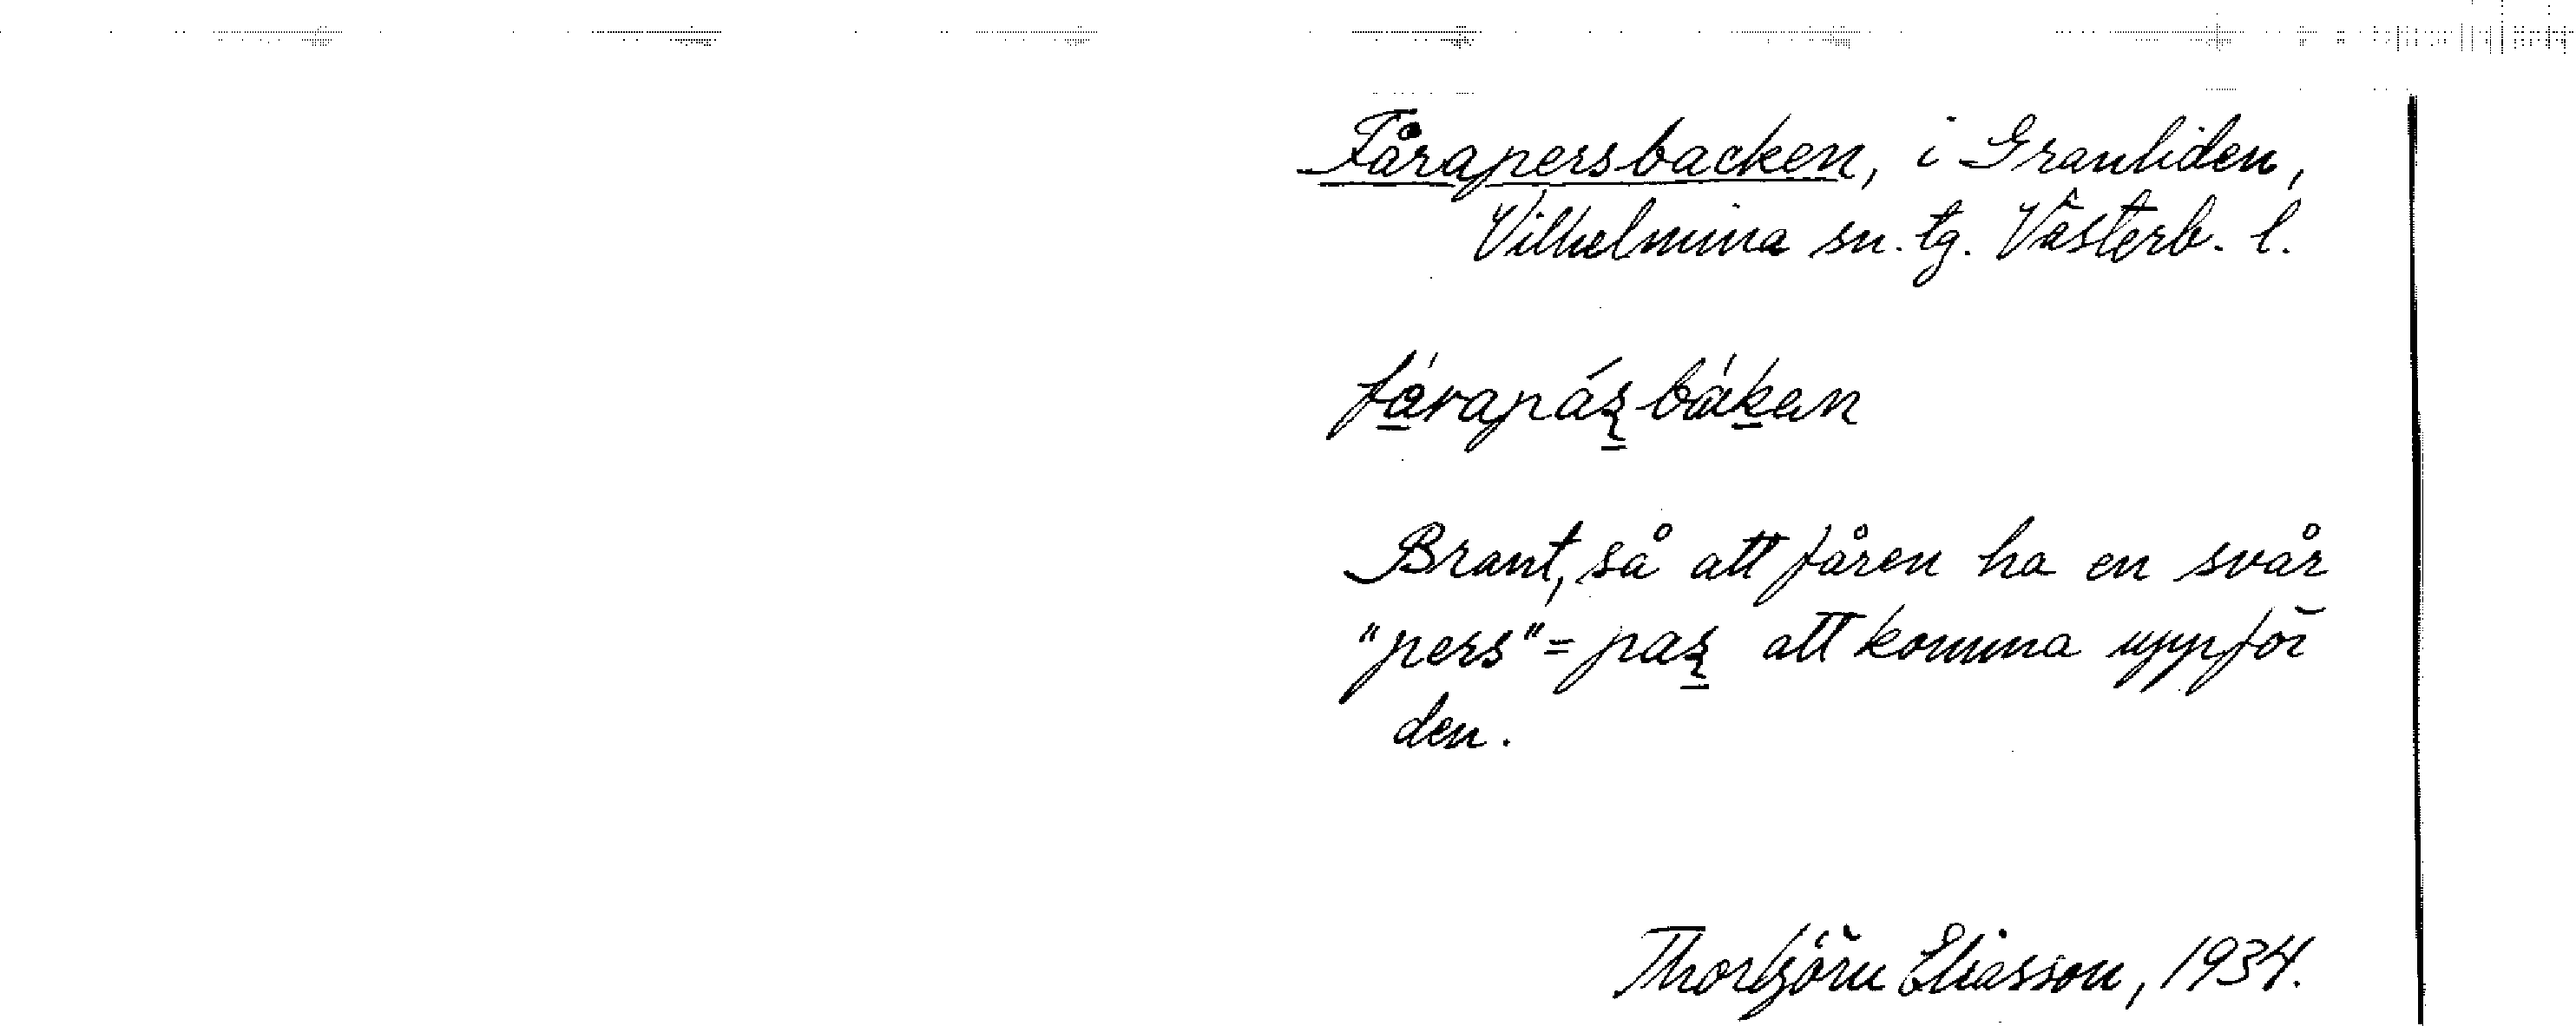 Fårapersbacken, i Granliden,
Vilhelmina sn. tg. Västerb. l.
fårapáʂbákan
Brant, så att fåren ha en svår
"pers" = paʂ att komma uppför
den.
Thorbjörn Eliasson, 1934.